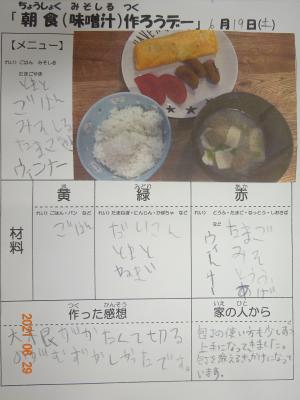 ちょうしょく みそしる つく
「朝食(味噌汁)作ろうデー」6月19日(土)
【メニュー】
れい) ごはん みそしる
たまごやき
とまと
ごはん
みそしる
たまごやき
ウィンナー
材料
き
黄
れい) ごはん・パン など
ごはん
みどり
緑
れい) たまねぎ・にんじん・かぼちゃ など
だいこん
とまと
ねぎ
あか
赤
れい) とうふ・たまご・なっとう・しおさば など
たまご
みそ
とうふ
あげ
ウィンナー
つく かんそう
作った感想
大根がかたくて切る
のがむずかしかったです。
いえ ひと
家の人から
包丁の使い方も少しずつ
上手になってきました。
包丁を教えるきっかけになって
います。
2021 06 29